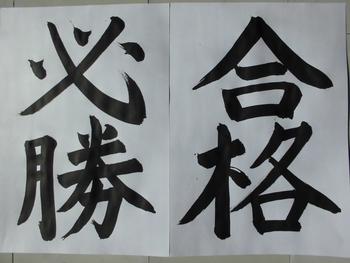 合格
必勝